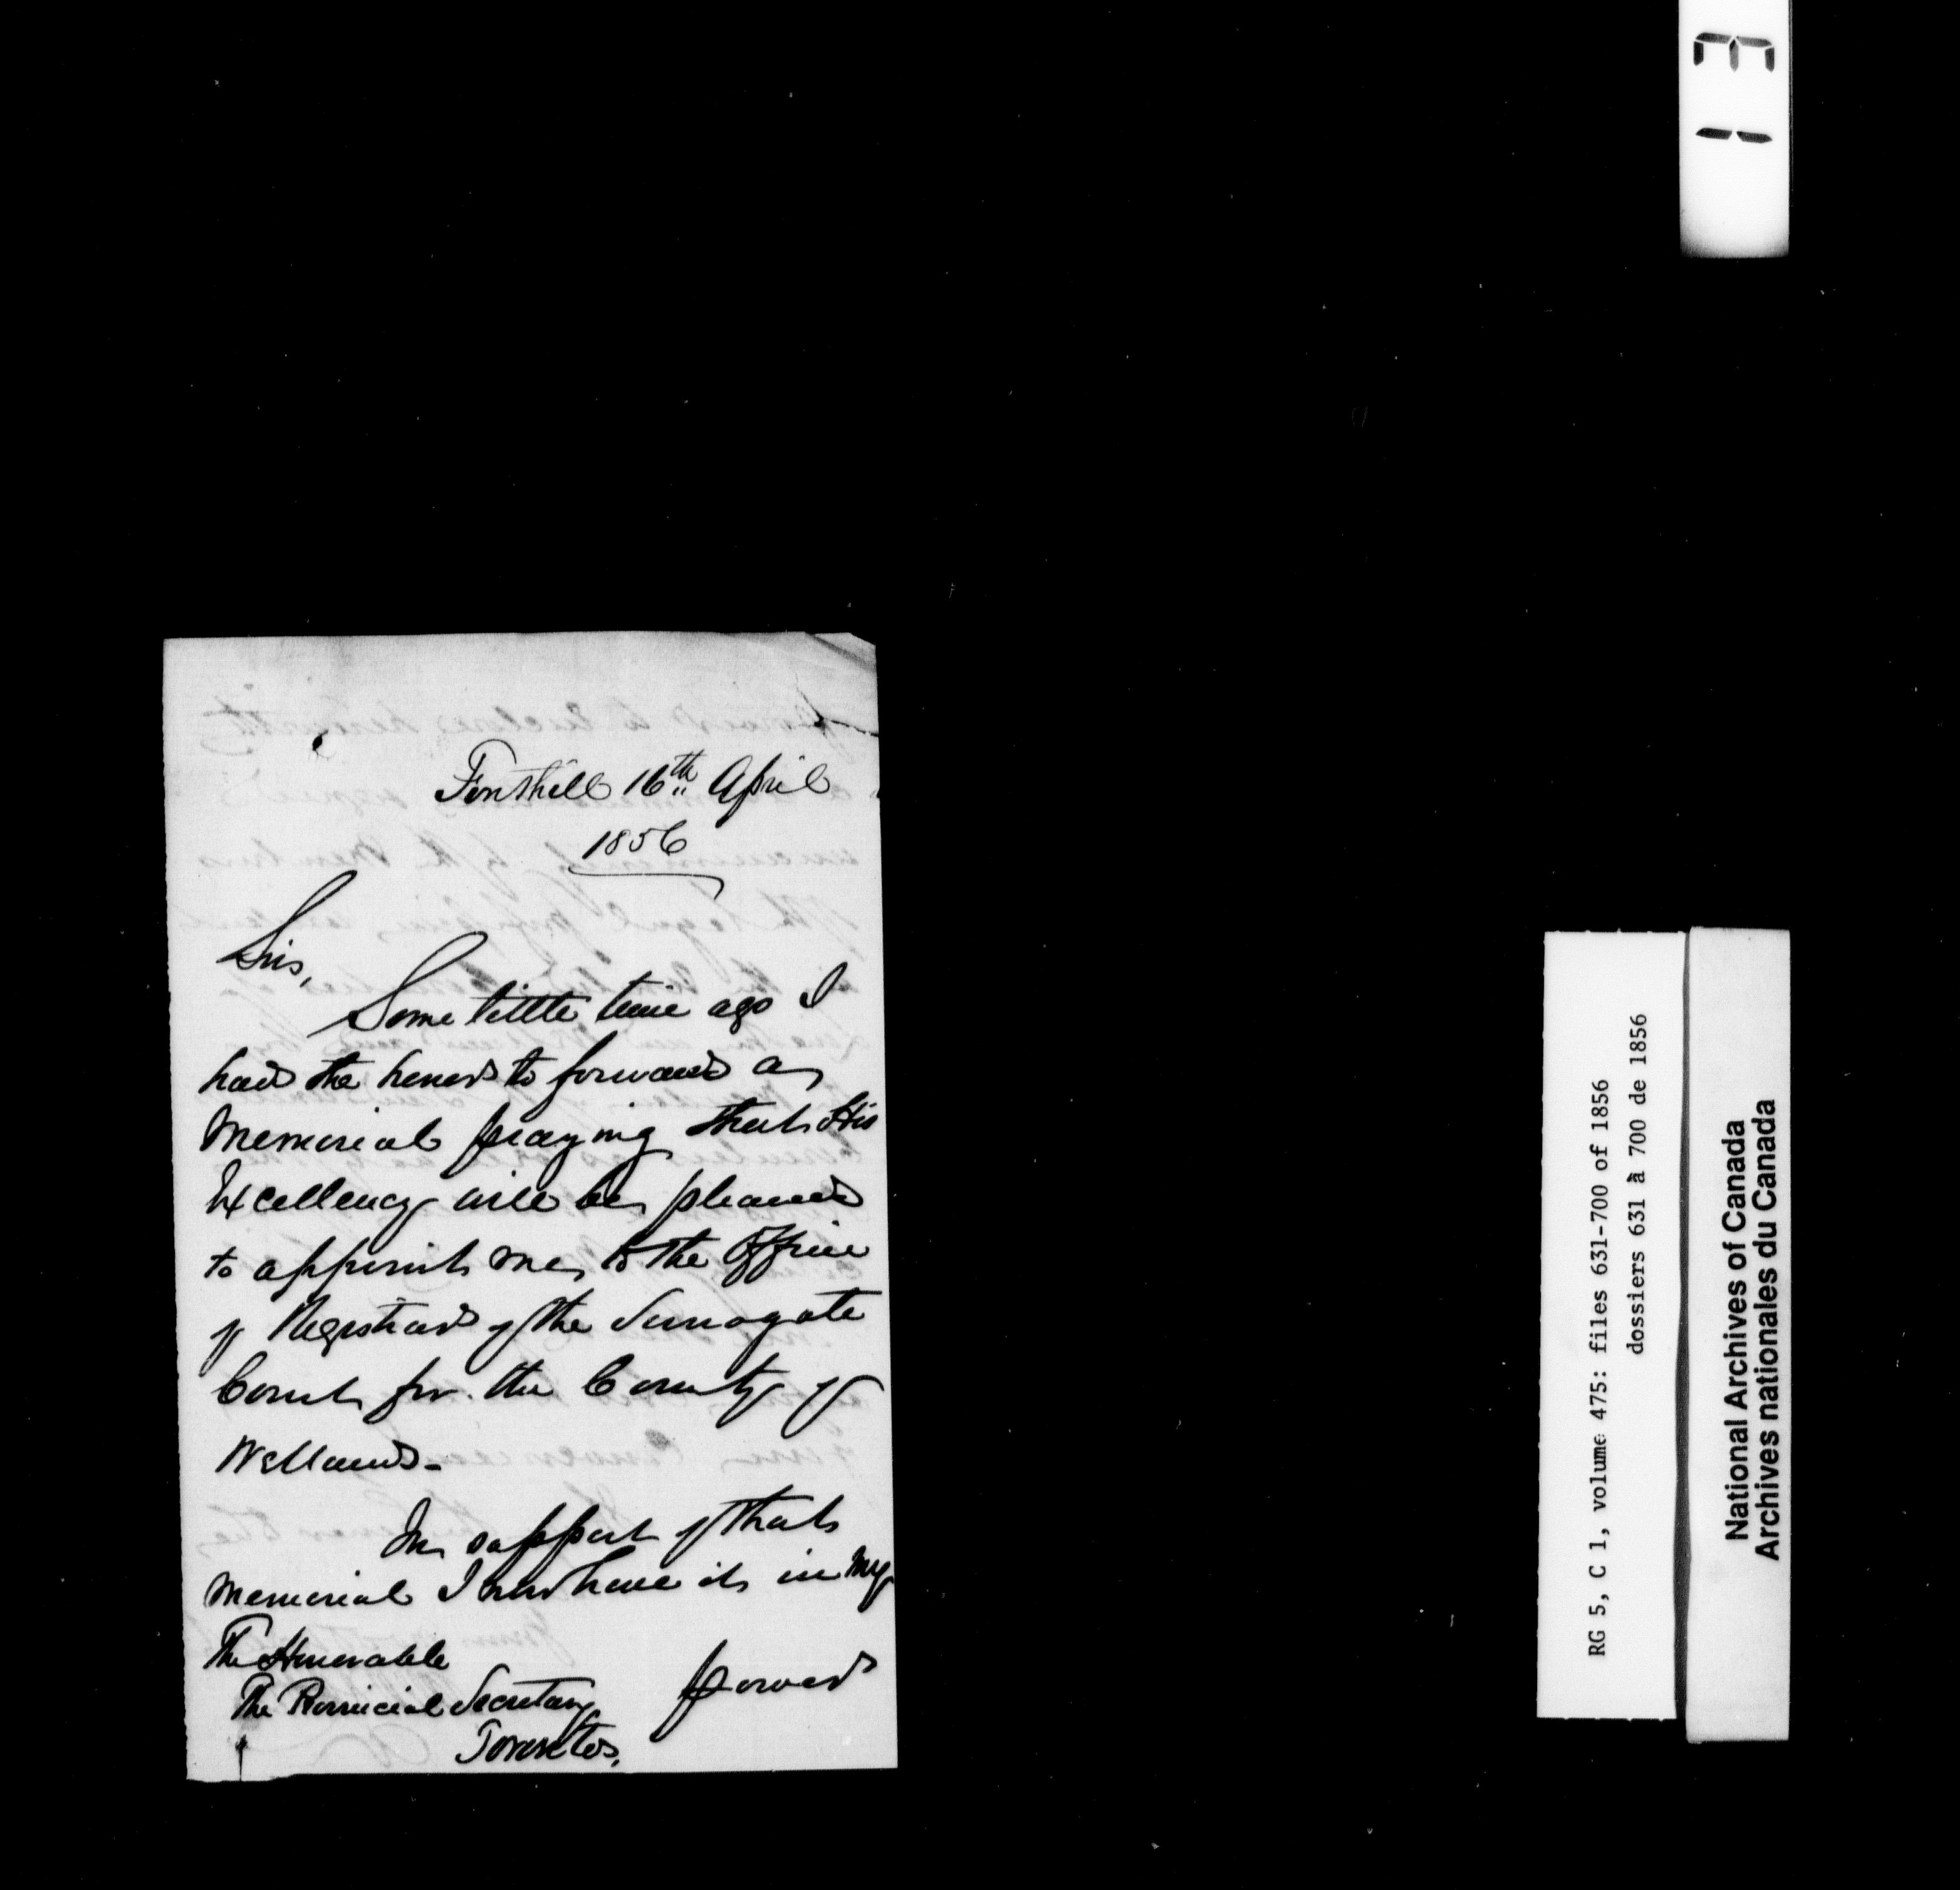 Fonthill 16th April
1856
Sir,
Some little time ago I
had the honor to forward a
Memorial praying that His
Excellency will be pleased
to appoint me to the Office
of Registrar of the Surrogate
Court for the County of
Welland -
In support of that
Memorial I now have it in my
The Honorable
The Provincial Secretary
Toronto,
power
13
RG 5, C 1, volume 475: files 631-700 of 1856
dossiers 631 à 700 de 1856
National Archives of Canada
Archives nationales du Canada